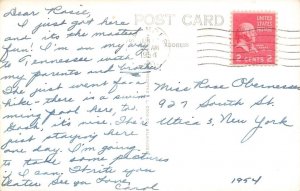 Dear Rosie,
I just got here
and its the mostest
fun! I'm on my way
to Tennessee with
my parents and brother!
We just went for a
hike - there is a swim-
ming pool here too.
Gosh, it's nice! There's
just staying here
one day. I'm going
to take some pictures
if I can. I'll write you
later. See ya. Love,
Carol
POST CARD
ADDRESS
UNITED STATES
POSTAGE
2 CENTS 2
Miss Rose Obernesser
927 South St.
Utica 3, New York
1954